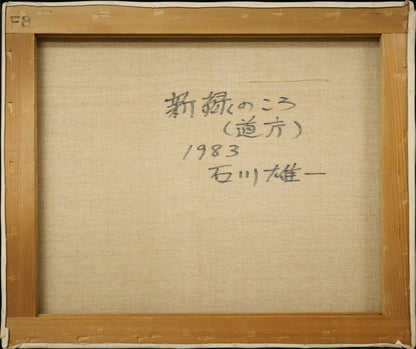 F8
新緑のころ
（道庁）
1983
石川雄一